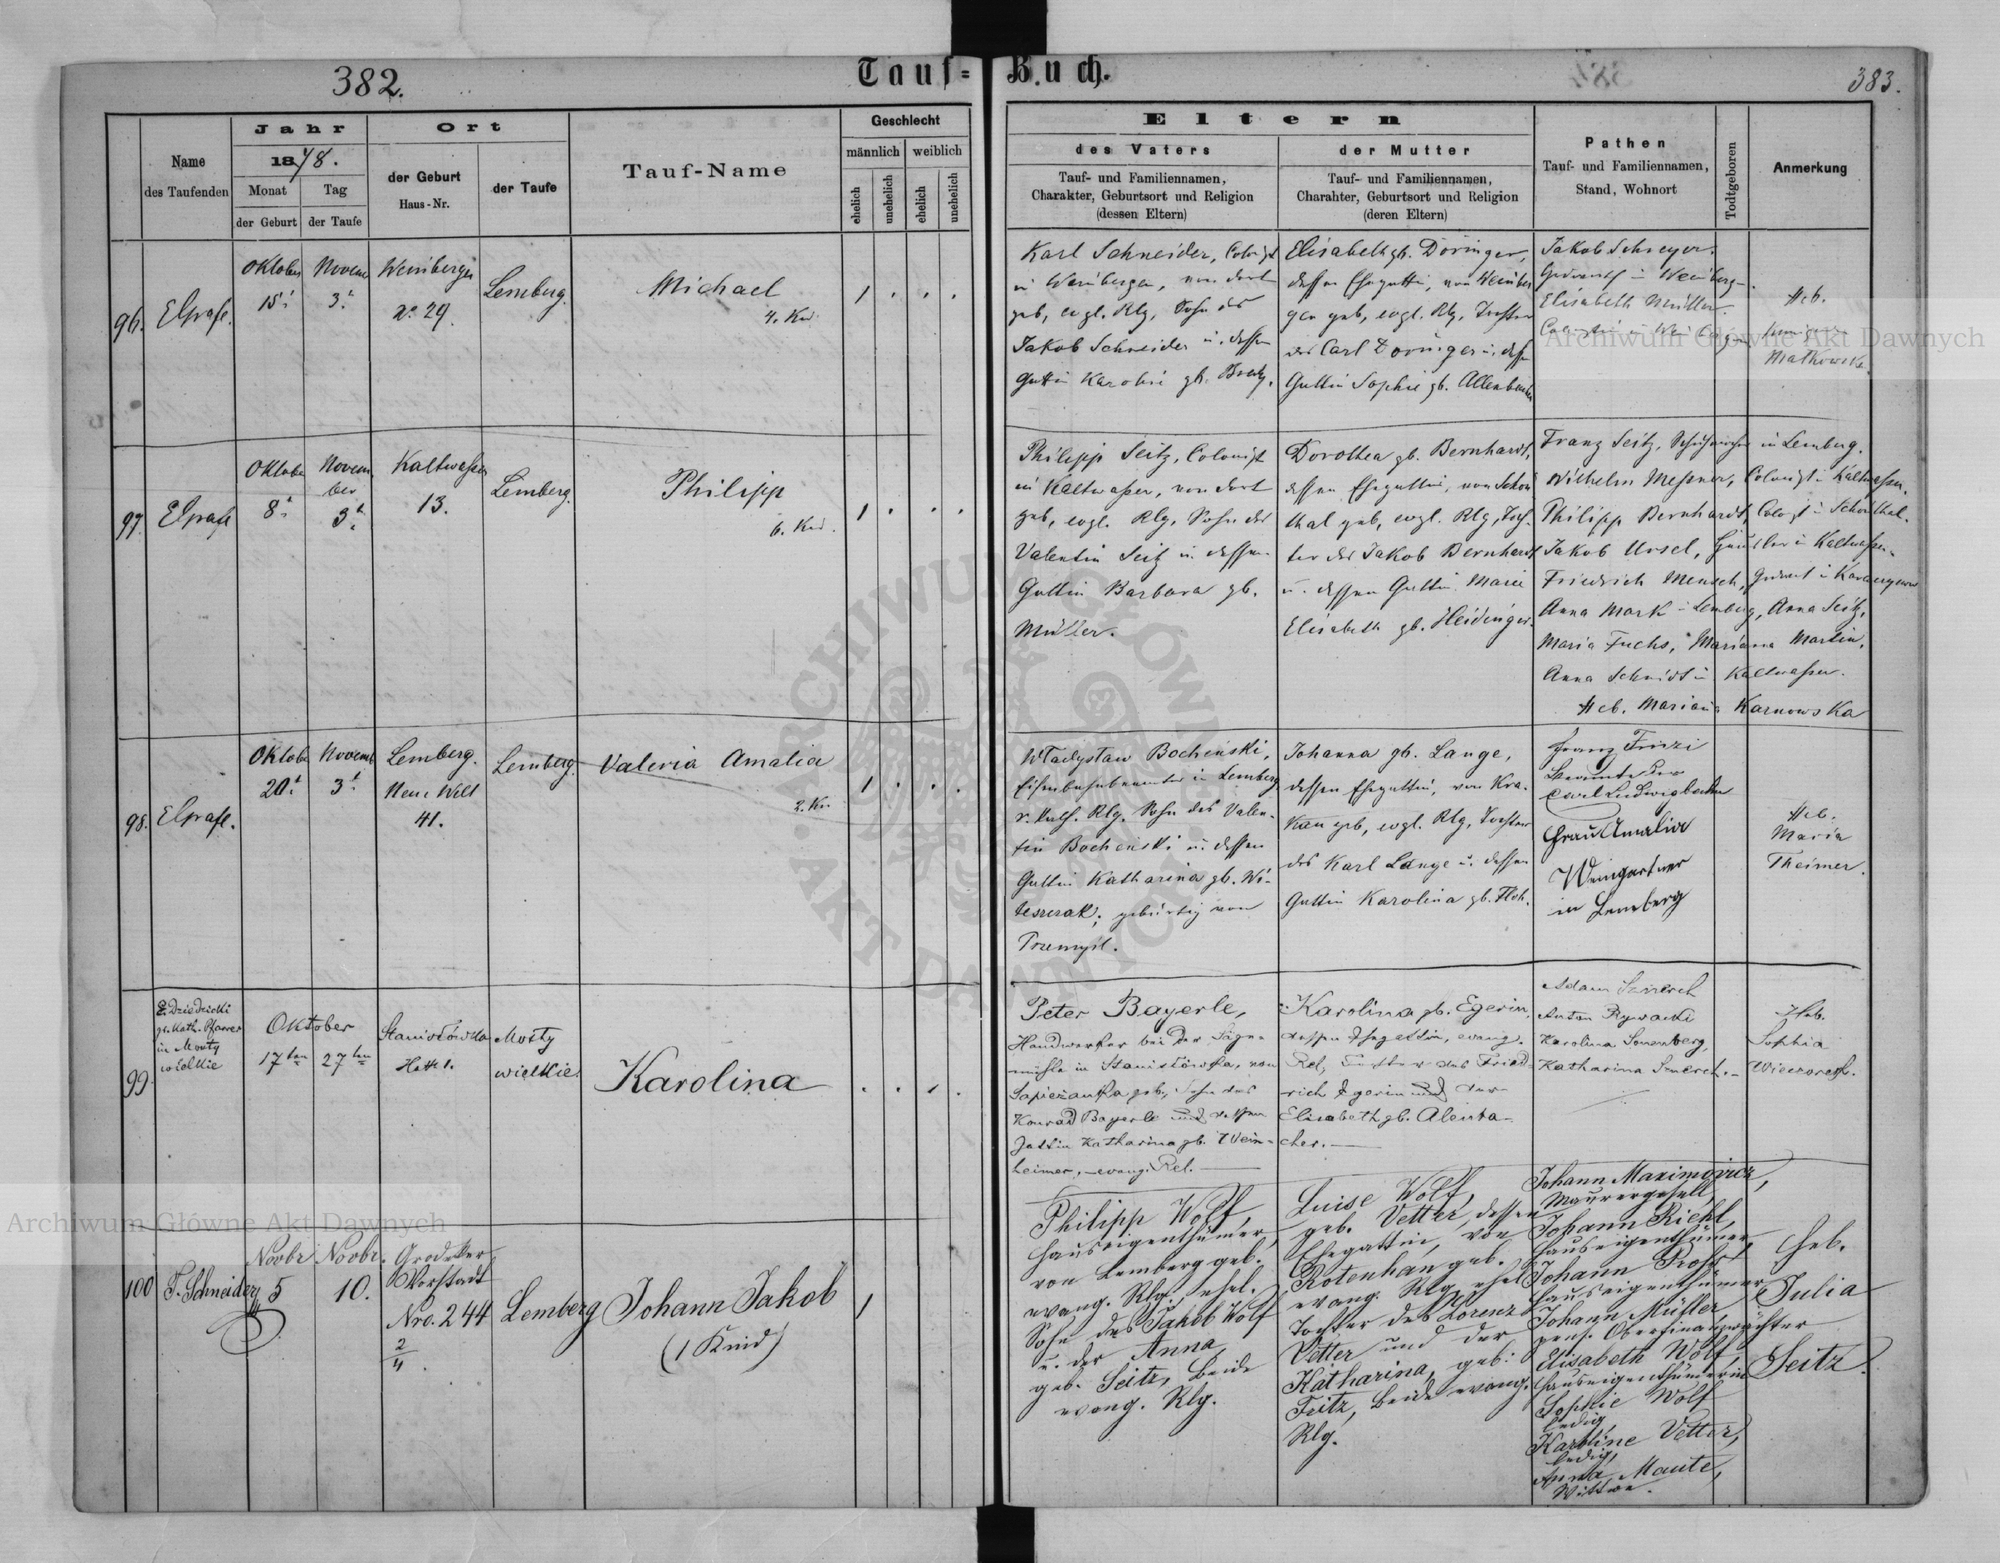 382.
Tauf=Buch.
383.
Name
des Taufenden
Jahr
1878.
Monat
Tag
der Geburt
der Taufe
Ort
der Geburt
Haus-Nr.
der Taufe
Tauf-Name
Geschlecht
männlich
weiblich
ehelich
unehelich
ehelich
unehelich
Eltern
des Vaters
Tauf- und Familiennamen,
Charakter, Geburtsort und Religion
(dessen Eltern)
der Mutter
Tauf- und Familiennamen,
Charahter, Geburtsort und Religion
(deren Eltern)
Pathen
Tauf- und Familiennamen,
Stand, Wohnort
Todtgeboren
Anmerkung
96.
Oktober
15t
Novem
3t
Weinbergen
No 29.
Lemberg.
Michael
4. Kind
Karl Schneider, Colonist
in Weinbergen, von dort
geb, evgl. Rlg, Sohn des
Jakob Schneider u. dessen
Gattin Karolin gb.
Elisabeth gb. Döringer,
dessen Ehegattin, von Weinber
gen geb, evgl. Rlg, Tochter
des Carl Döringer u. dessen
Gattin Sophie gb.
Jakob Schreyer
in Weinberg
Elisabeth Müller
Heb.
Matkowska
97.
Oktober
8t
Novem
ber
3t
Kaltwasser
13.
Lemberg.
Philipp
6. Kind.
Philipp Seitz, Colonist
in Kaltwasser, von dort
geb, evgl. Rlg, Sohn des
Valentin Seitz u dessen
Gattin Barbara gb.
Müller.
Dorothea gb. Bernhardt,
dessen Ehegattin, von Schön
thal geb, evgl. Rlg, Toch-
ter des Jakob Bernhardt
u. dessen Gattin Marie
Elisabeth gb. Heidinger.
Franz Seitz, in Lemberg.
Wilhelm Messner, Colonist in Kaltwasser.
Philipp Bernhardt, Colonist in Schönthal.
Jakob Ursel, Häusler in Kaltwasser.
Friedrich Mensch,
Anna Mark in Lemberg, Anna Seitz,
Maria Fuchs, Mariana Martin,
Anna Schmidt in Kaltwasser.
Heb. Mariana Karnowska
98.
Oktob
20t
Novemb
3t
Lemberg.
Neue Welt
41.
Lemberg.
Valeria Amalia
2. Kin
Władysław Bocheński,
Eisenbahnbeamter in Lemberg
r. kath. Rlg. Sohn des Valen-
tin Bocheński u. dessen
Gattin Katharina gb. Wi-
teszczak, gebürtig von
Przemysl.
Johanna gb. Lange,
dessen Ehegattin, von Kra-
kau geb, evgl. Rlg, Tochter
des Karl Lange u. dessen
Gattin Karolina gb. Floh.
Franz
Beamte der
Carl Ludwigbahn
Frau Amalia
Weingartner
in Lemberg
Heb.
Maria
Theimer.
99.
gr. Kath. Pfarrer
in Mosty
wielkie
Oktober
17ten 27ten
Stanisłówka
Mosty
wielkie
Karolina
Peter Bayerle,
Handwerker bei der Säge-
mühle in Stanisłówka, von
Sapieżanka geb., Sohn des
Konrad Bayerle und dessen
Gattin Katharina gb. Wein-
heimer, evang. Rel.
Karolina gb. Egerin,
dessen Ehegattin, evang.
Rel, Tochter des Fried-
rich Egerin und der
Elisabeth gb. Alenba-
cher.
Adam
Anton
Karolina Sonenberg,
Katharina
Heb.
Sophia
Wieczorek.
100
F. Schneider
Novbr
5
Novbr.
10.
Grodeker
Vorstadt
Nro. 244
2/4.
Lemberg
Johann Jakob
(1 Kind)
Philipp Wolf,
Hauseigenthümer,
von Lemberg geb.
evang. Rlg. ehel.
Sohn des Jakob Wolf
u. der Anna
geb. Seitz, beide
evang. Rlg.
Luise Wolf,
geb. Vetter, dessen
Ehegattin, von
Rotenhan geb.
evang. Rlg. ehel
Tochter des Lorenz
Vetter und der
Katharina, geb:
Fritz, beide evang.
Rlg.
Johann Maximowicz,
Maurergesell,
Johann Riehl,
Hauseigenthümer
Johann
Hauseigenthümer
Johann Müller
pens. Oberfinanzwächter
Elisabeth Wolf
Hauseigenthümerin
Sophie Wolf
ledig,
Karoline Vetter,
ledig,
Anna Maute,
Wittwe.
Heb.
Julia
Seitz.
Archiwum Główne Akt Dawnych
Archiwum Główne Akt Dawnych
ARCHIWUM GŁÓWNE AKT DAWNYCH